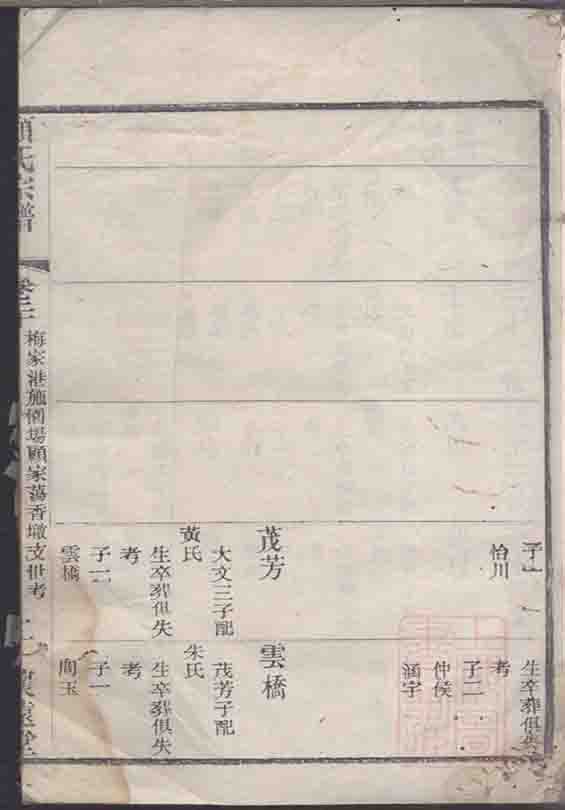 子一
怡川
生卒葬俱失
考
子二
仲侯
涵宇
茂芳
大文三子配
黃氏
生卒葬俱失
考
子一
雲橋
雲橋
茂芳子配
朱氏
生卒葬俱失
考
子一
顧氏宗譜
卷二
梅家港施個場顧家蕩香墩支世考